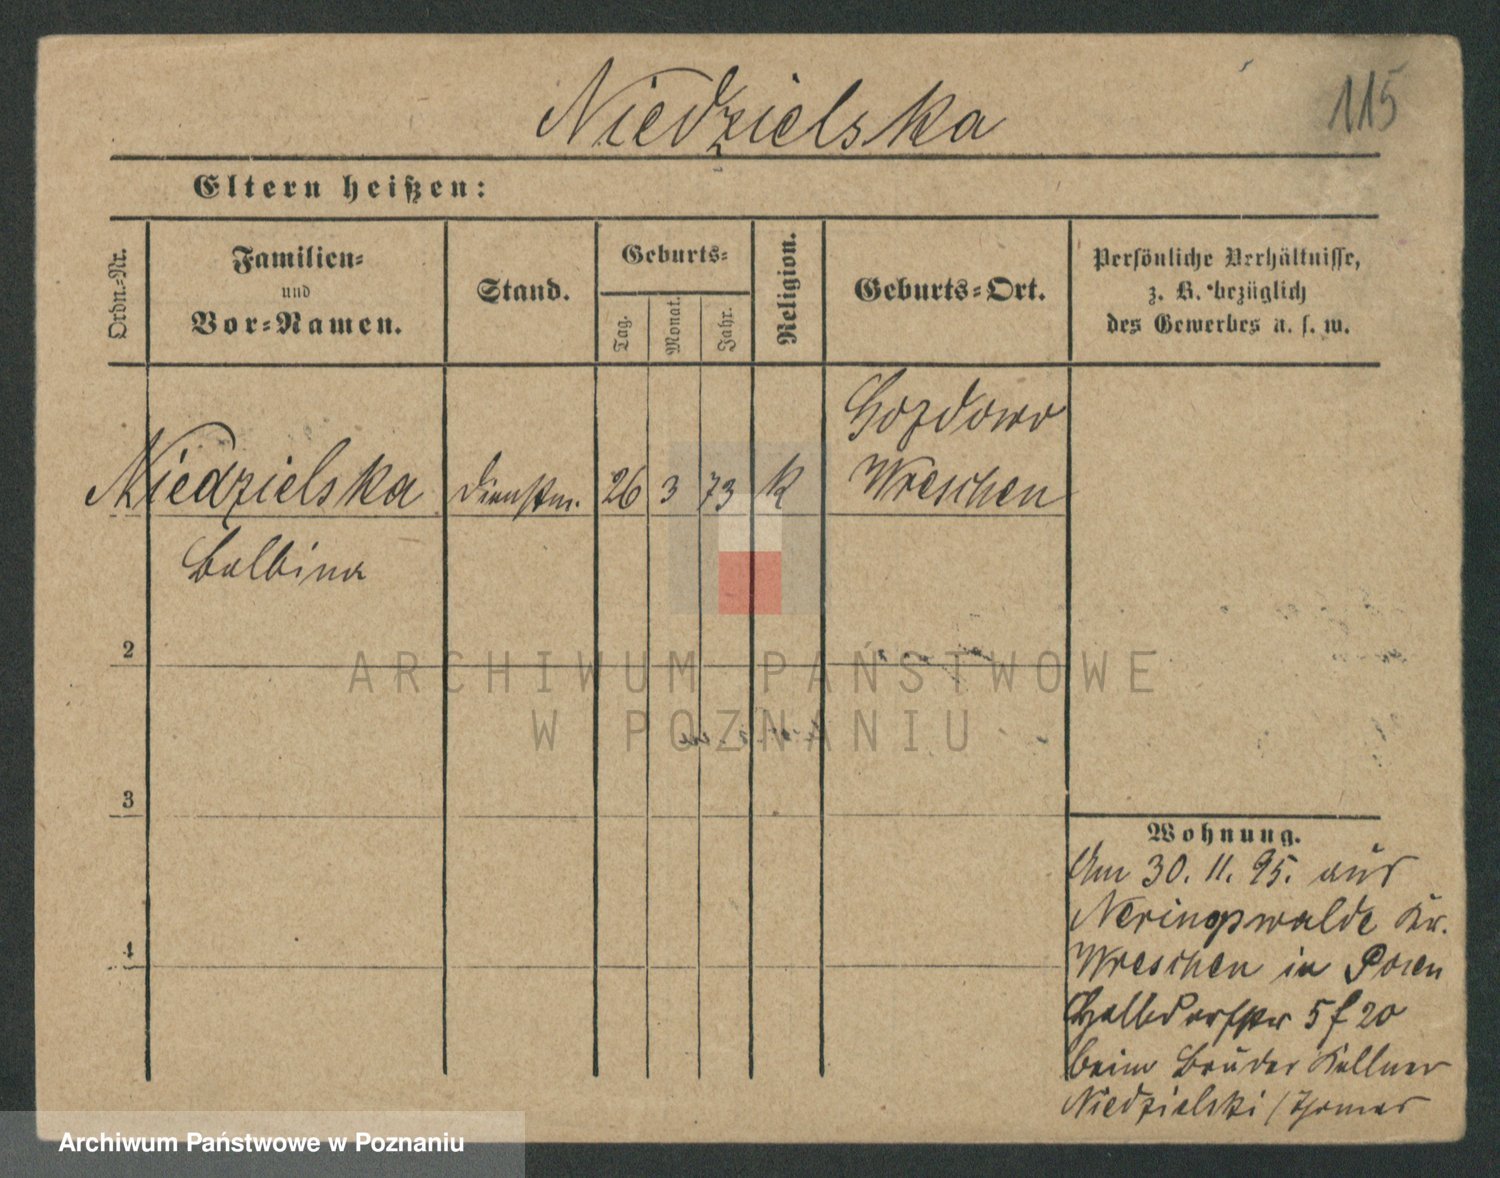 115
Niedzielska
Eltern heißen:
Ordn.-Nr.
Familien-
und
Vor-Namen.
Stand.
Geburts-
Tag.
Monat.
Jahr.
Religion.
Geburts-Ort.
Persönliche Verhältnisse,
z. B. bezüglich
des Gewerbes u. s. w.
Niedzielska
Dienstm.
26
3
73
k
Gozdowo
Wreschen
Balbina
2
3
4
Wohnung.
Am 30. 11. 95. aus
Neringswalde Kr.
Wreschen in Posen
Halbdorfstr 5 f 20
beim Bruder Kellner
Niedzielski / Thomas
ARCHIWUM PAŃSTWOWE
W POZNANIU
Archiwum Państwowe w Poznaniu